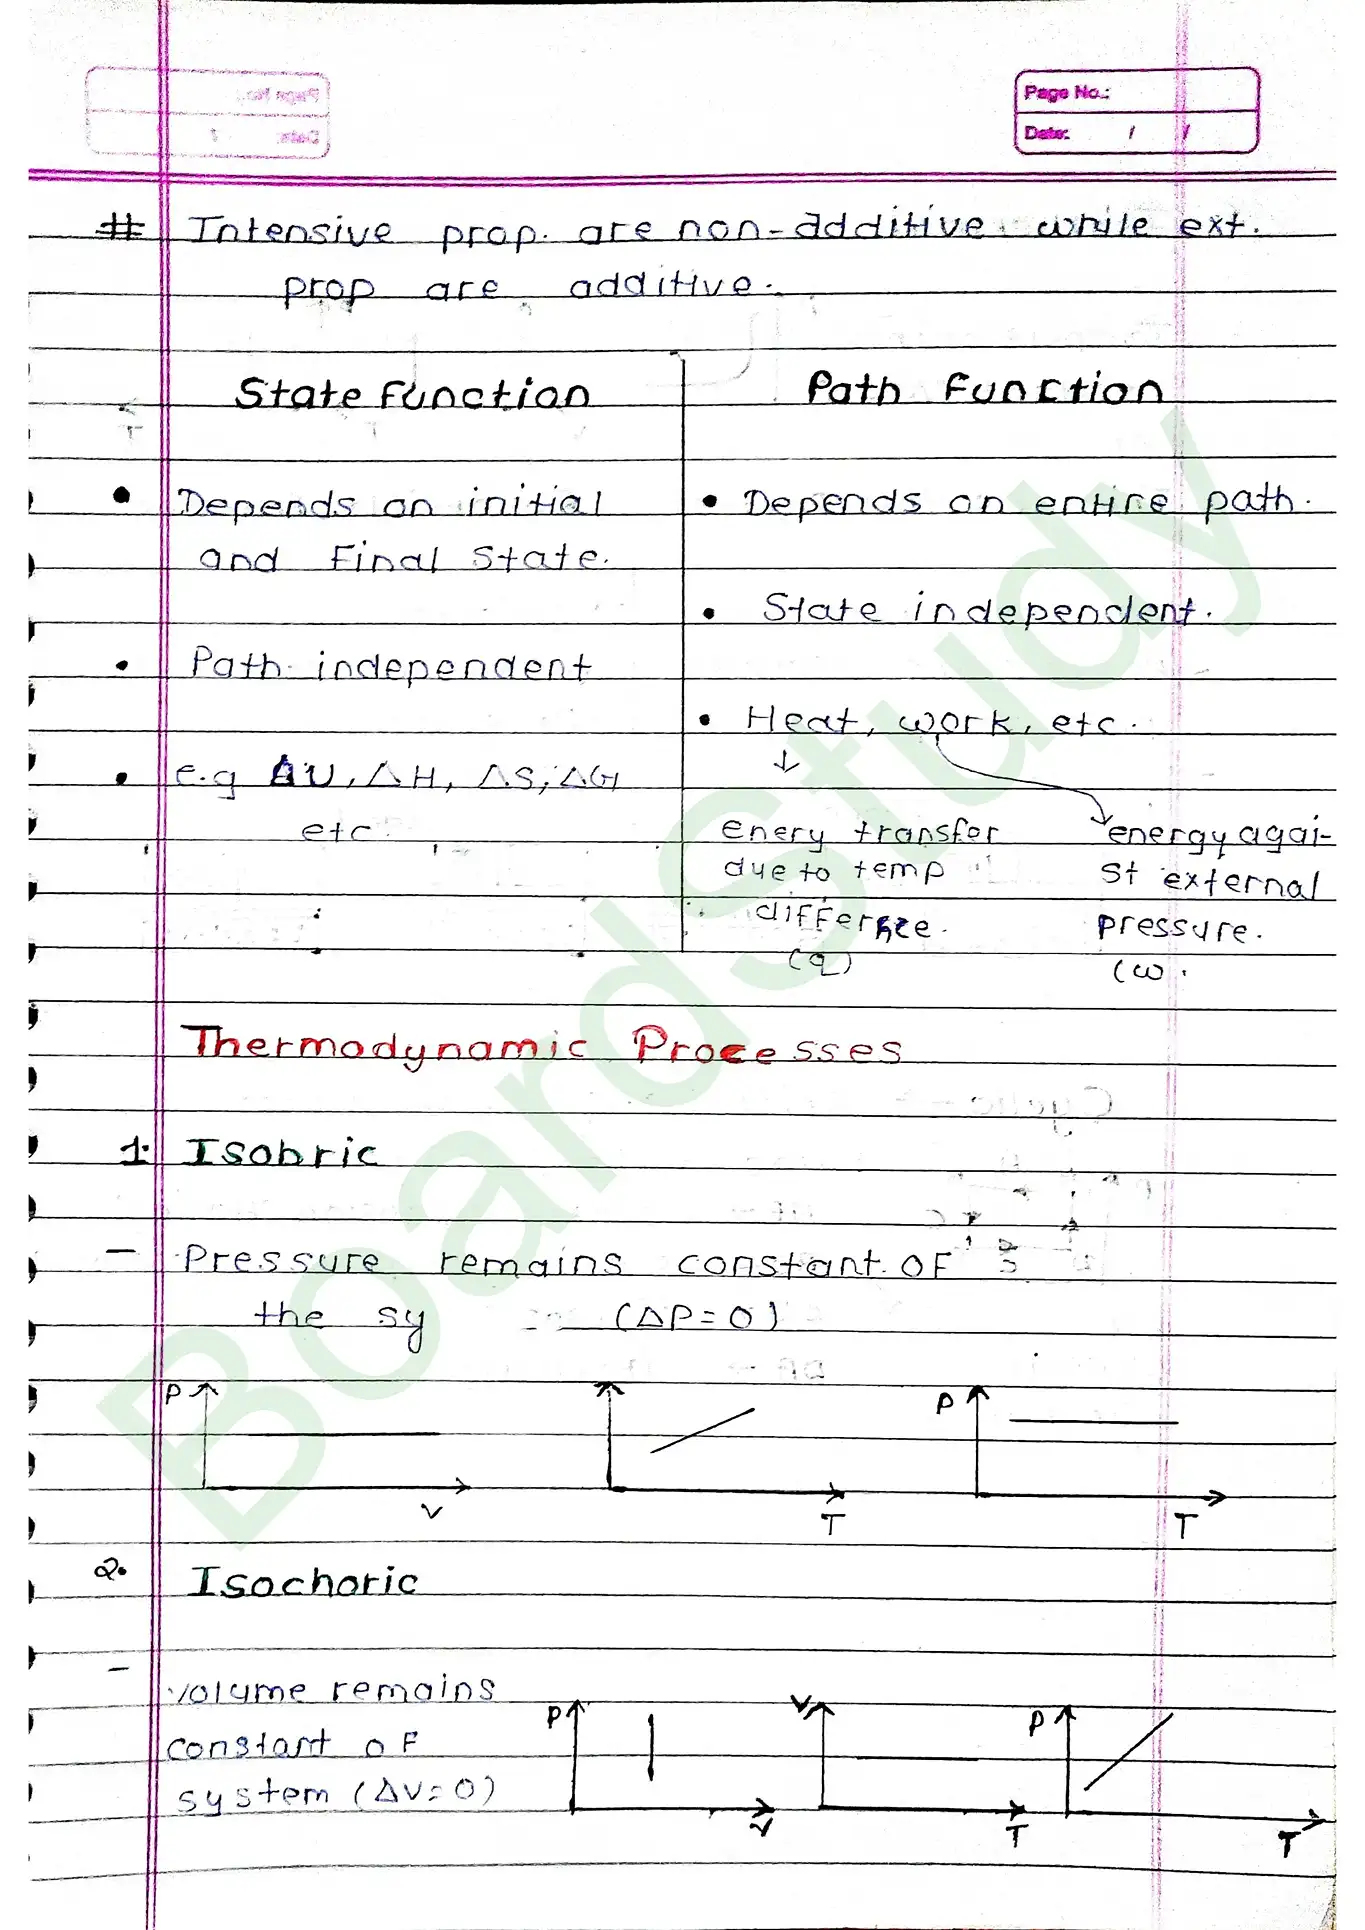 Page No.:
Date: / /
# Intensive prop. are non-additive while ext.
prop are additive.
State Function
Path Function
• Depends on initial
and Final State.
• Path independent
• e.g ΔU, ΔH, ΔS, ΔG
etc.
• Depends on entire path.
• State independent.
• Heat, work, etc.
↓
enery transfer
due to temp
differnce.
(q)
energy agai-
st external
pressure.
(w.
Thermodynamic Processes
1. Isobric
- Pressure remains constant of
the sy (ΔP=0)
P
V
T
P
T
2. Isochoric
- volume remains
constant of
system (ΔV=0)
P
V
V
T
P
T
BoardStudy